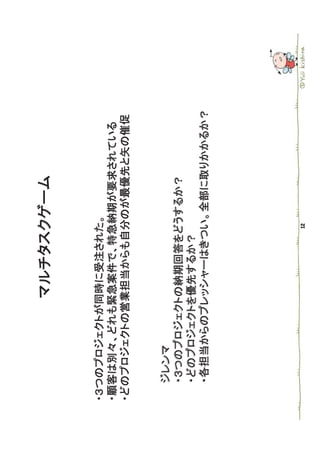 マルチタスクゲーム
・３つのプロジェクトが同時に受注された。
・顧客は別々、どれも緊急案件で、特急納期が要求されている
・どのプロジェクトの営業担当からも自分のが最優先と矢の催促
ジレンマ
・３つのプロジェクトの納期回答をどうするか？
・どのプロジェクトを優先するか？
・各担当からのプレッシャーはきつい。全部に取りかかるか？
12
©Yuji kishira